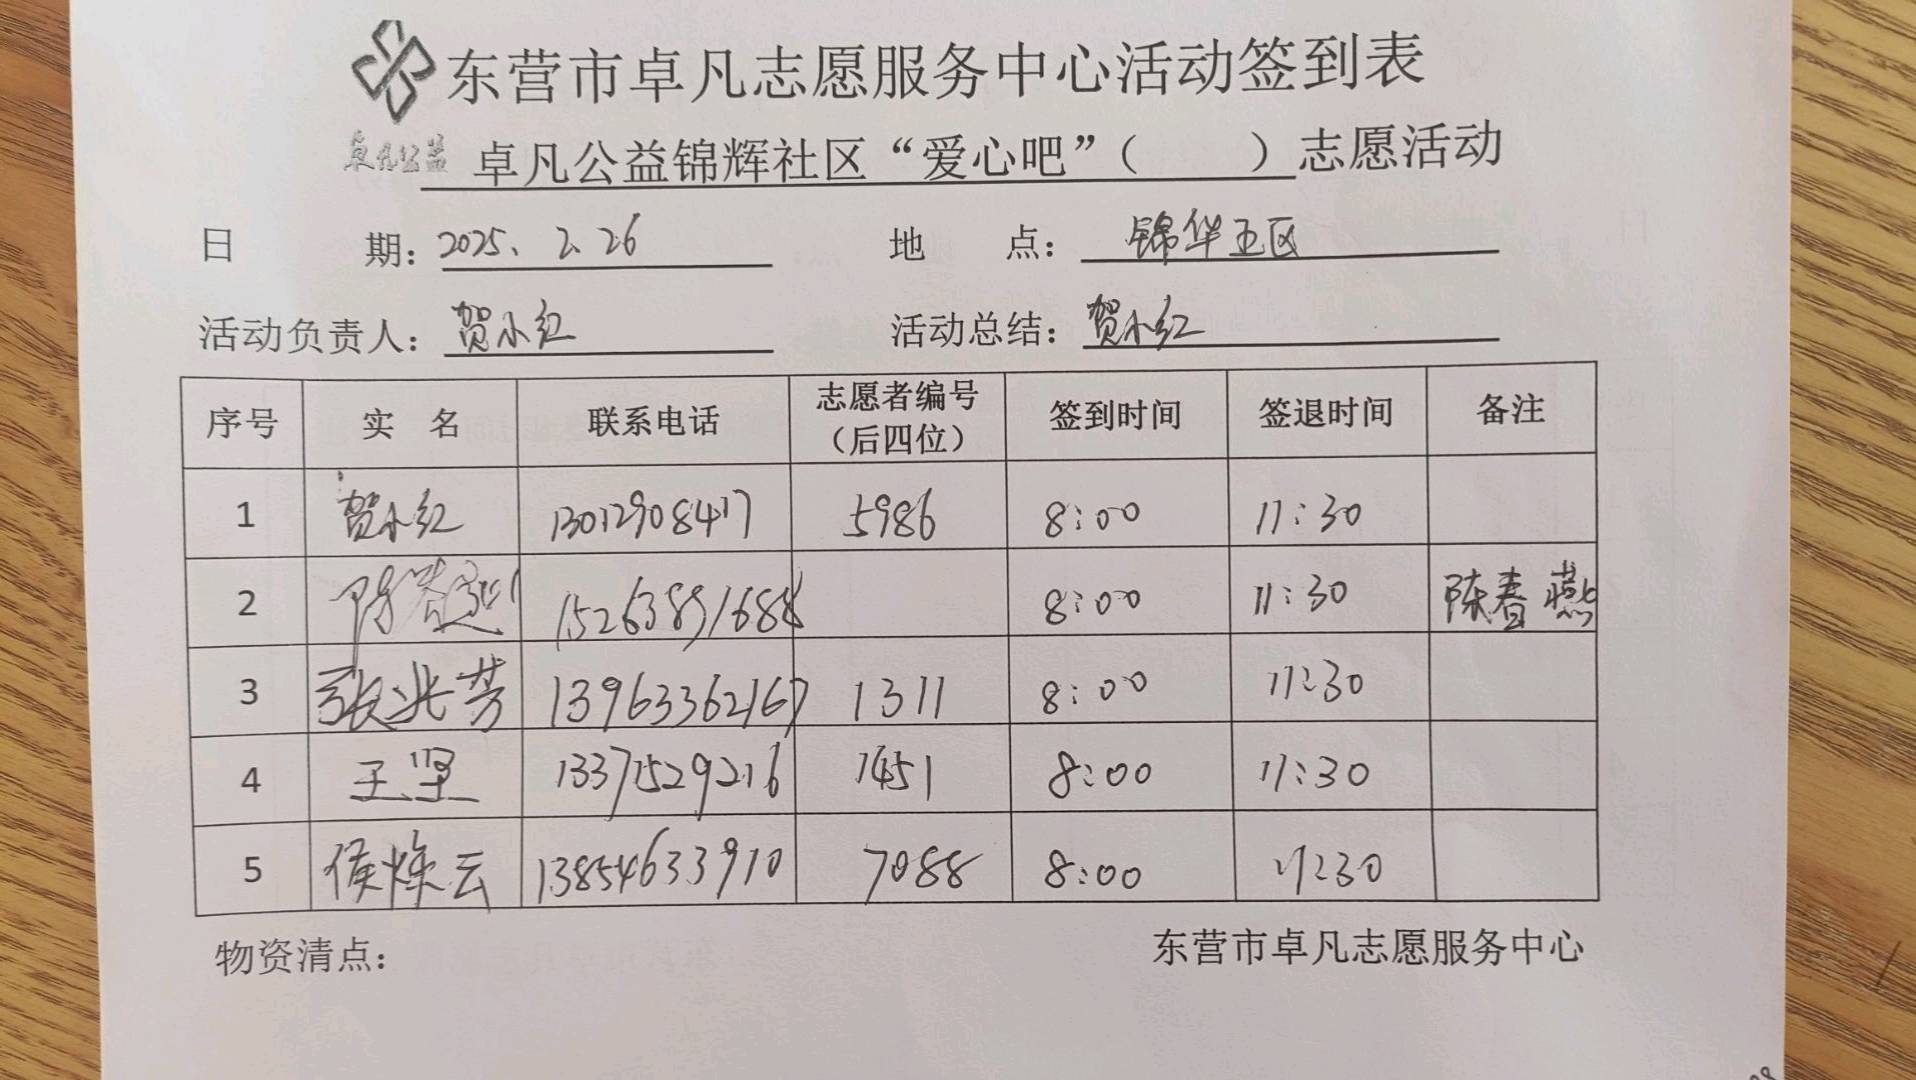 东营市卓凡志愿服务中心活动签到表
卓凡公益 卓凡公益锦辉社区“爱心吧”（　　）志愿活动
日期：2025、2.26 地点：锦华五区
活动负责人：贺小红 活动总结：贺小红
序号 实名 联系电话 志愿者编号（后四位） 签到时间 签退时间 备注
1 贺小红 13012908417 5986 8:00 11:30
2 陈春燕 15263891688 8:00 11:30 陈春燕
3 张兆芳 13963362167 1311 8:00 11:30
4 王坚 13371529216 1451 8:00 11:30
5 侯焕云 13854633910 7088 8:00 11:30
物资清点： 东营市卓凡志愿服务中心